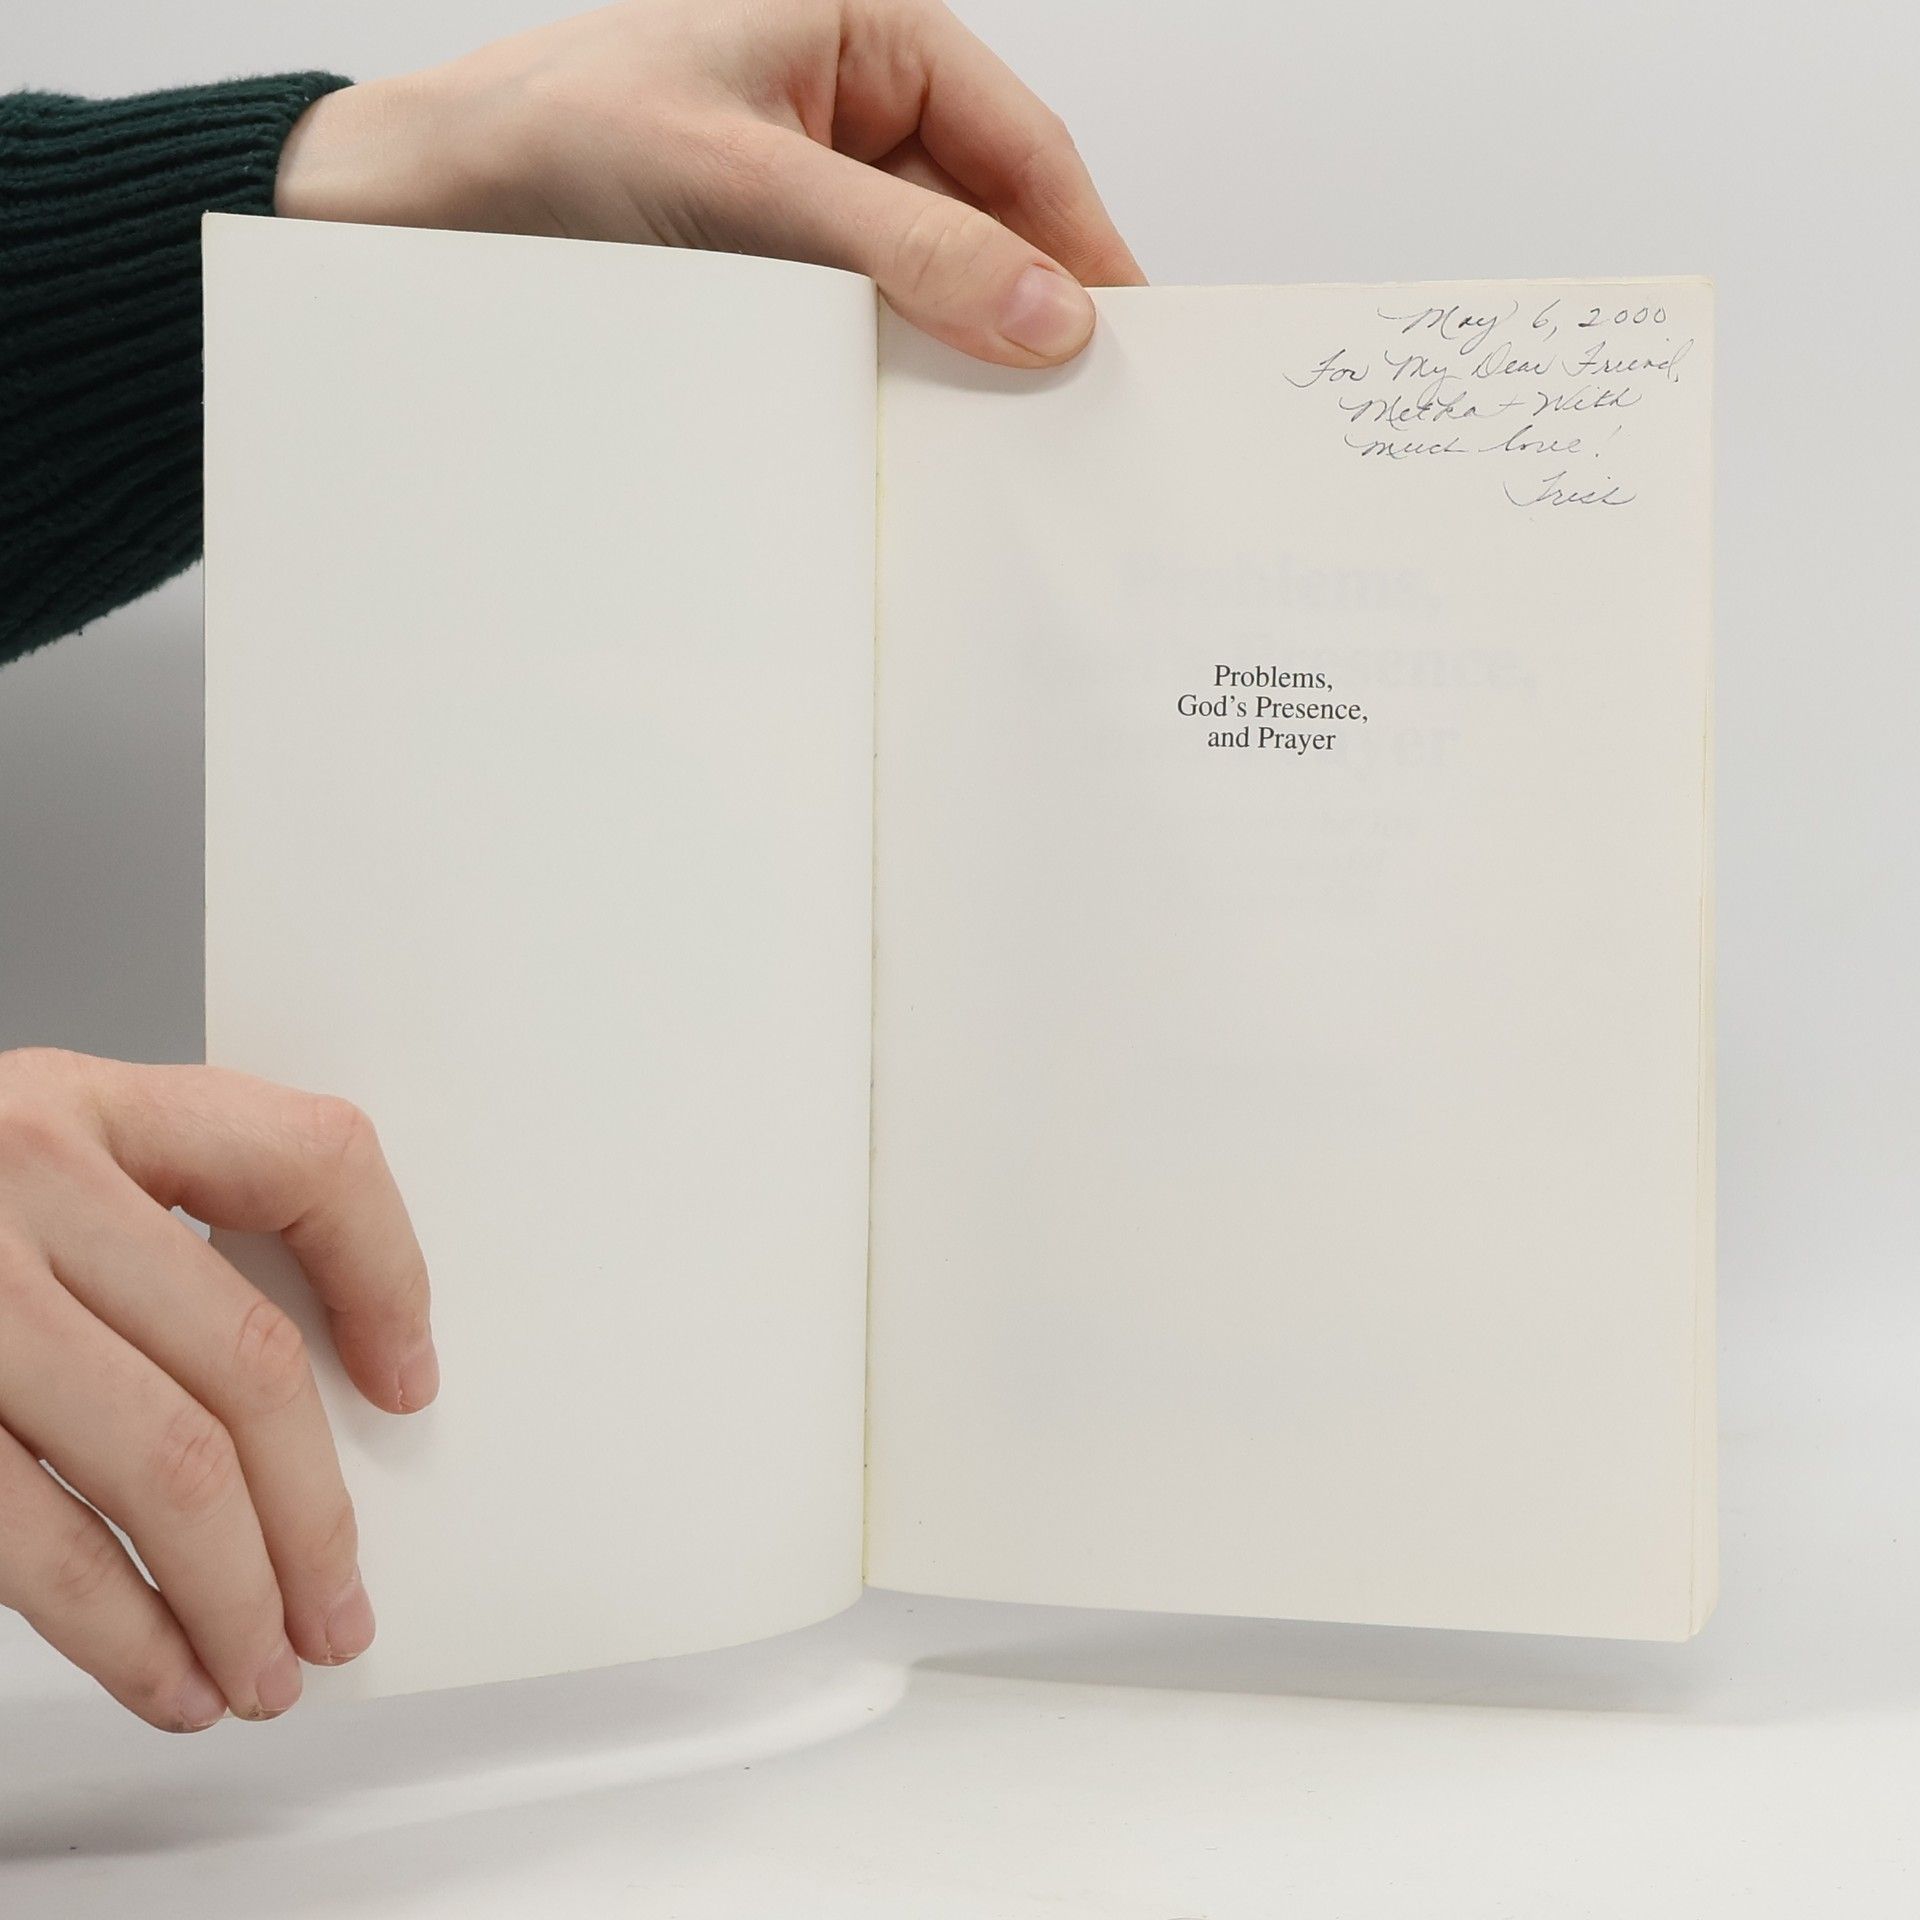 May 6, 2000
For My Dear Friend,
Metka + With
much love!
Trish
Problems,
God's Presence,
and Prayer